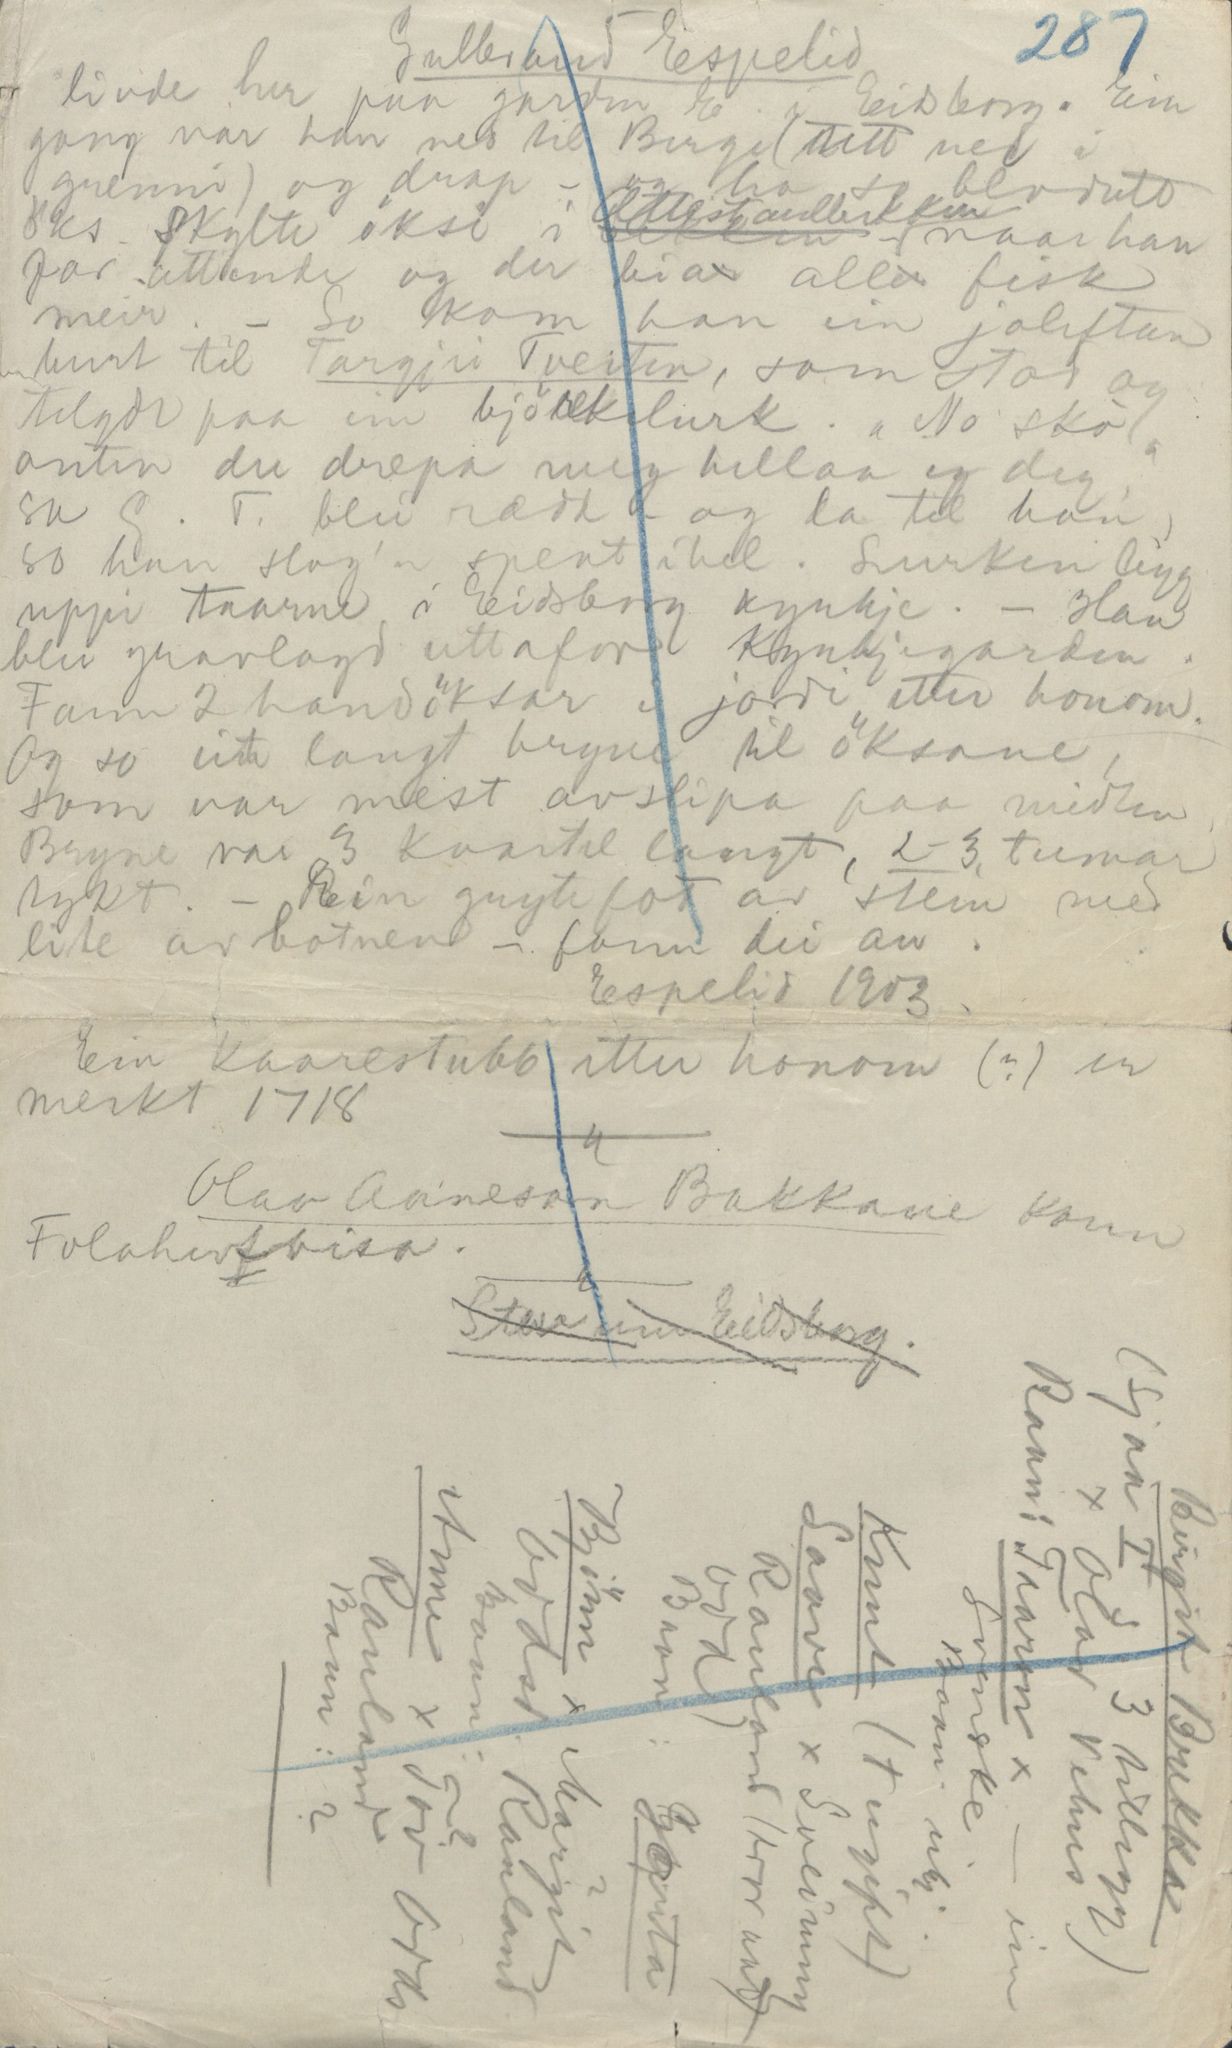 287
Gullbrand Espelid
livde her paa garden E. i Eidsborg. Ein
gong var han ned til Berge (tett ned i
grenni) og drap – og ha so blodutt
öks. Skylte öksi i – naar han
for attende og der biar aller fisk
meir. – So kom han ein joleftan
burt til Targjei Tveiten, som stod og
telgde paa ein björkelurk. "No sko
anten du drepa meg hellaa eg deg,"
sa G. T. blei rædd – og la til han,
so han slog'n spent ihel. Lurken ligg
uppi taarne i Eidsborg kyrkje. – Han
blei gravlagd uttafor kyrkjegarden.
Fann 2 handöksar i jordi etter honom.
Og so eit langt bryne til öksane,
som var mest avslipa paa midten.
Bryne var 3 kvartel langt, 2-3 tumar
tykt. – Ein grytefot av stein med
lite av botnen – fann dei au.
Espelid 1903.
Ein kaarestubb etter honom (?) er
merkt 1718
Olav Aanesson Bakkane kann
Folahovisa.
Eidsborg.
Birgit Brukka
(Sjaa I 3 hillingg)
x Olav Vehus
Baan: Taaron x — ein
Svenske
Baan: ikj.
Knut (+ ugift)
Saave x Sveinung
Rauland
Odd)
Baan: Gro
Björn x Margit
Odds. Rauland
Baan: ?
Anne x Tov Odds
Rauland
Baan: ?